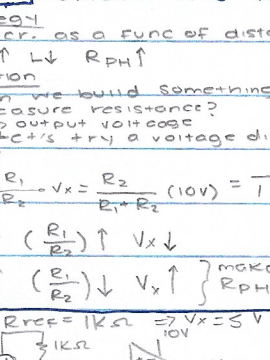 cr. as a func of dist
↑ L↓ R_PH↑
n we build something
easure resistance?
output voltage
et's try a voltage di
R₁/R₂ · Vx = R₂/(R₁+R₂) (10V) = 1
(R₁/R₂)↑ Vx↓
(R₁/R₂)↓ Vx↑ } make R_PH
Rref = 1KΩ ⇒ Vx = 5V
10V
1KΩ